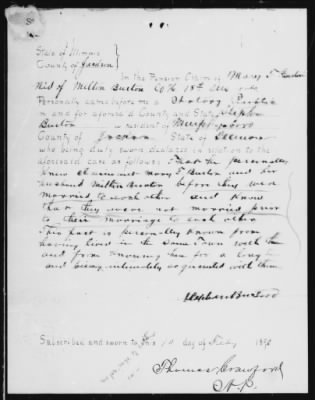 State of Illinois
County of Jackson
In the Pension Claim of Mary T. Burton
Wid of Milton Burton Co H 18th Ills
Personally came before me a Notary Public
in and for aforesaid County and State Stephen
Burton a resident of Murfreesboro
County of Jackson State of Illinois
who being duly sworn declares in relation to the
aforesaid case as follows: That he personally
knew claimant Mary T Burton and her
husband Milton Burton before they were
married to each other and know
that they were not married prior
to their marriage to each other
This fact is personally known from
having lived in the same Town with them
and from knowing them for a long
and being intimately acquainted with them
Stephen Burton
Subscribed and sworn to this 10 day of July 1890
Thomas Crawford
N.P.